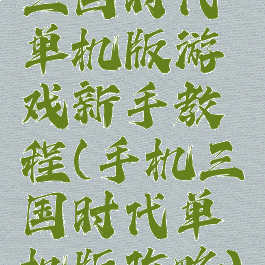 三国时代
单机版游
戏新手教
程(手机三
国时代单
机版攻略)